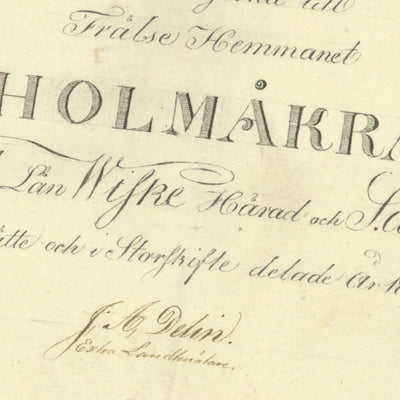 till
Frälse Hemmanet
HOLMÅKRA
Län Wiske Härad och
och i Storskifte delade År
J. A. Delin.
Extra Landtmätare.